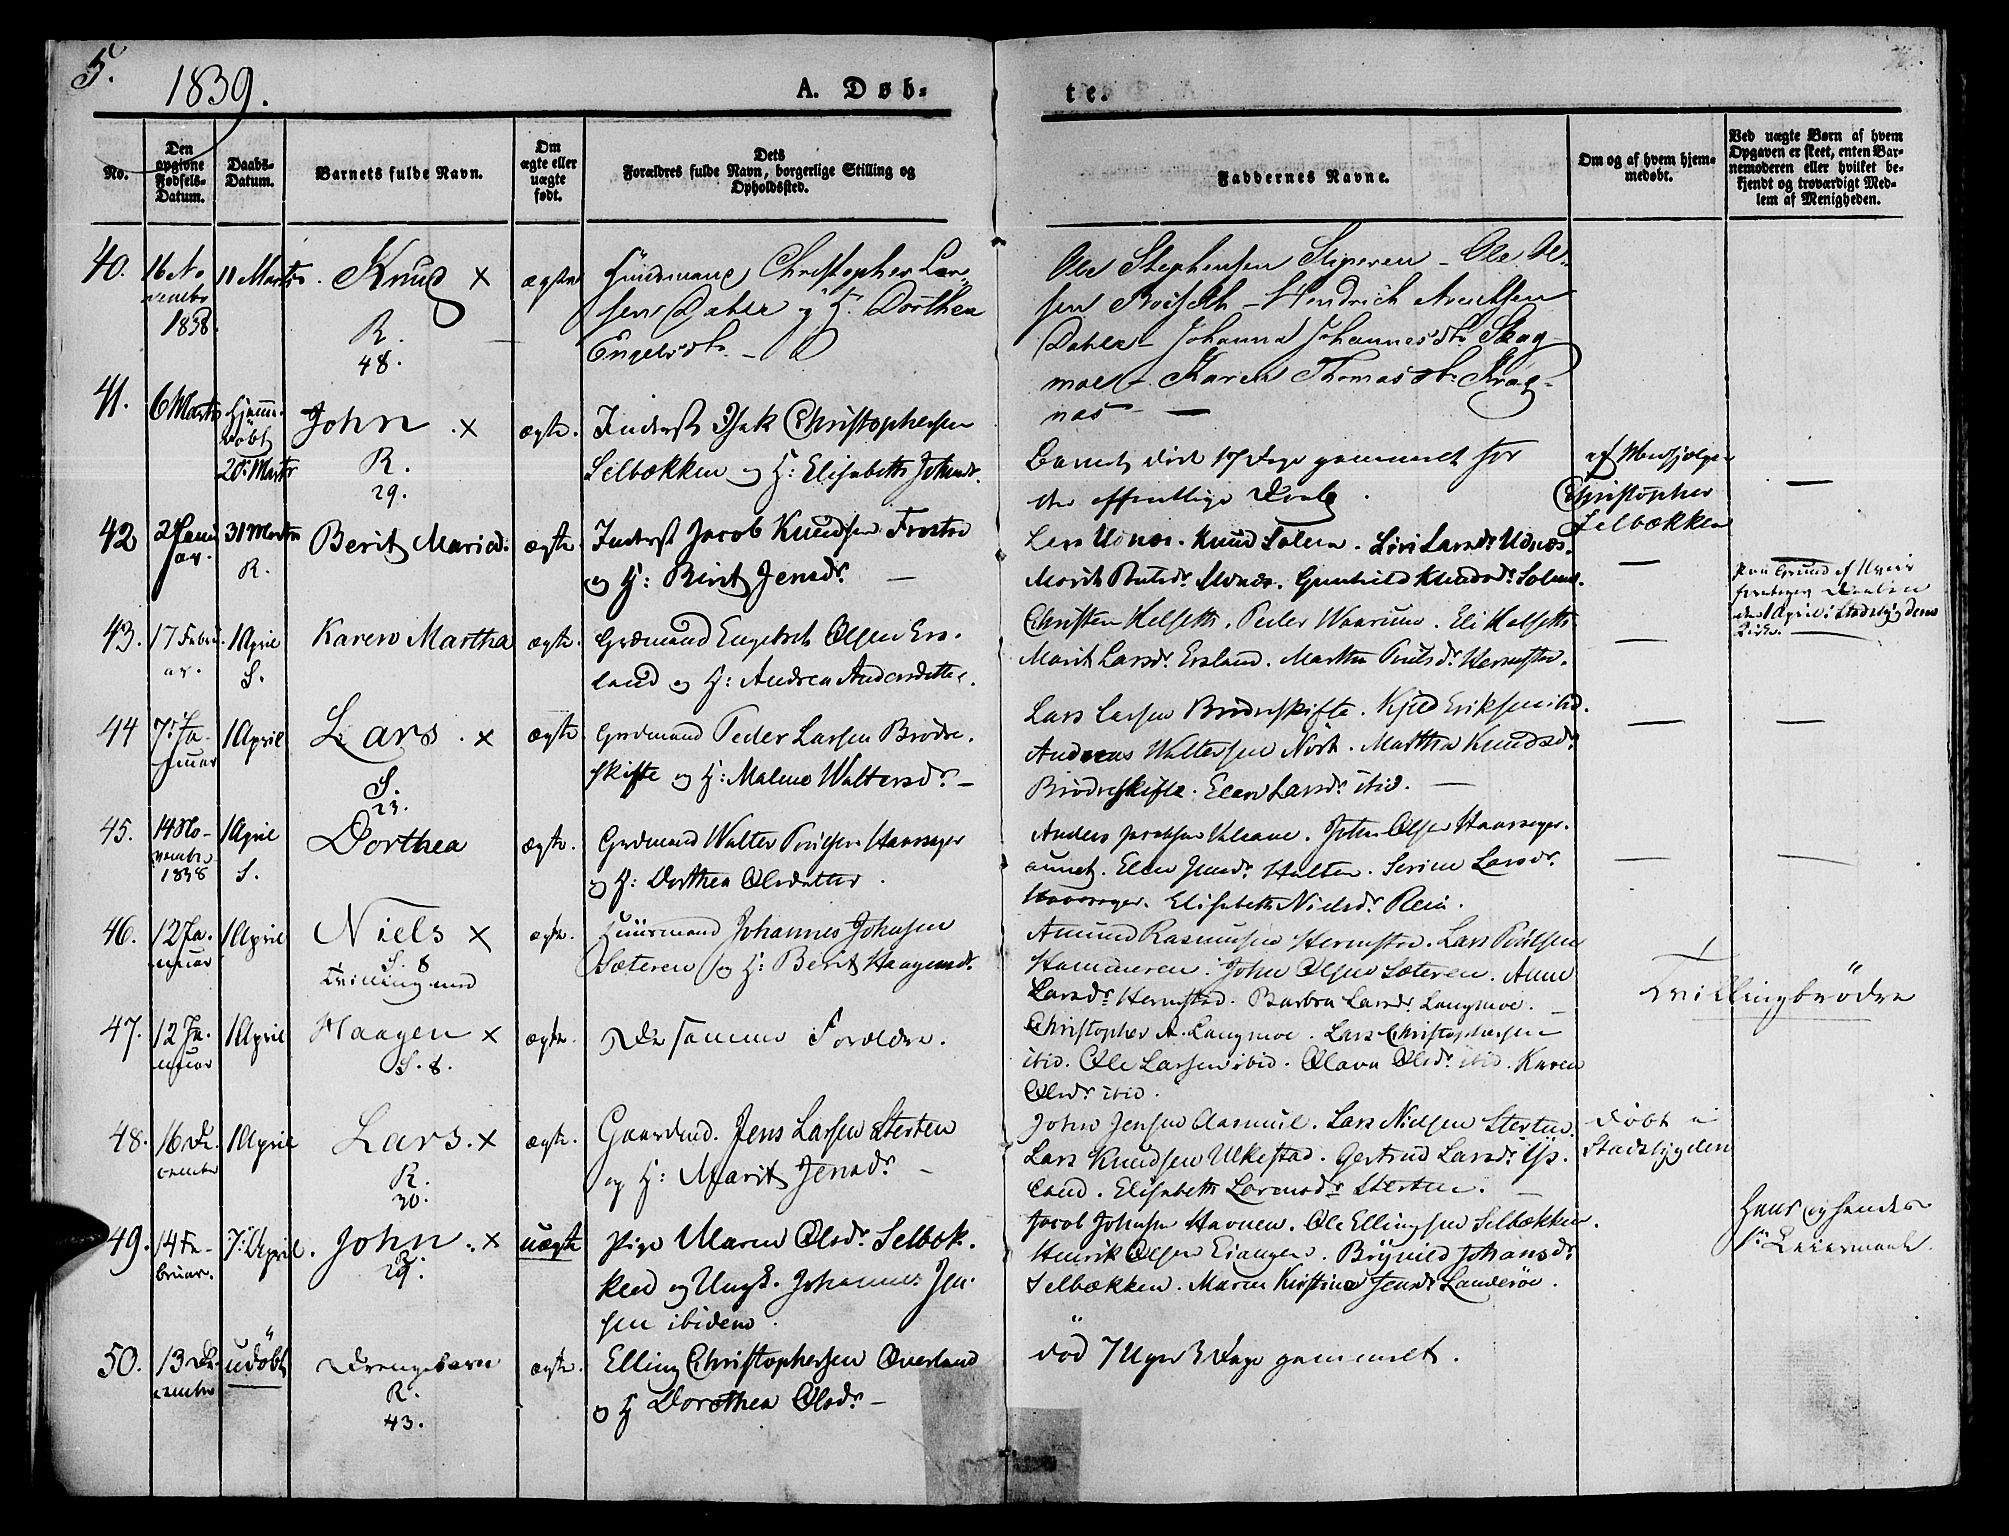 5.
1839.
A. Døb-
te.
No.
Den
opgivne
Fødsels-
Datum.
Daabs-
Datum.
Barnets fulde Navn.
Om
ægte eller
uægte
født.
Dets
Forældres fulde Navn, borgerlige Stilling og
Opholdssted.
Faddernes Navne.
Om og af hvem hjem-
medøbt.
Ved uægte Børn af hvem
Opgaven er skeet, enten Bar-
nemoderen eller hvilket be-
kjendt og troværdigt Med-
lem af Menigheden.
40.
16 No-
vembr
1838.
Knud ×
R.
48.
ægte
Christopher Lar-
sen Dahle og H. Dorthea
Engelsdr. -
Ole Stephensen - Ole Ol-
sen - Hendrich Arentsen
Dahle - Johanna Johannesdr. Skag-
moe - Karen Thomasdr. Krag-
nes -
41.
6 Marts
Hjemme-
døbt
20. Marts
John . ×
R.
29.
ægte.
Inderst Isak Christophersen
Selbækken og H: Elisabeth Johnsdr.
Barnet død 17 Dage gammelt før
den offentlige Daab.
Christopher
Selbækken
—
42
2 Janu
ar.
31 Marts
R.
Berit Maria.
ægte.
Inderst Jacob Knudsen
og H: Berit Jensdr. —
Lars Udnæs. Knud Solem. Larsdr. Udnæs.
Marit Gunhild Knudsdr. Solem.
—
43.
17 Febru.
ar.
1 April
S.
Karen Martha
ægte.
Grdmand Engebret Olsen Ers-
land og H: Andrea Andersdatter.
Christen Helseth. Peder Waarum. Eli Helseth.
Marit Larsdr. Ersland. Martha
—
paa Grund af
Daaben
den 1 April i Stadsbygdens
Kirke. —
44
7. Ja-
nuar
1 April
Lars . ×
S.
23.
ægte.
Grdmand Peder Larsen Brødre-
skifte og H: Malene Waltersdr. —
Lars Larsen Brødreskifte. Kjeld Eriksen ibid.
Andreas Waltersen Martha Knudsdr.
Brødreskifte. Elen Larsdr. ibid. —
—
—
45.
14 No-
vembr
1838
1 April
S.
Dorthea
ægte.
Grdmand Walter Haarsager
og H: Dorthea Olsdatter.
Anders Jacobsen John Olsen Haarsager-
aunet. Elen Jensdr. Hulten. Serine Larsdr.
Haarsager. Elisabeth Nielsdr. Rein.
—
—
46.
12 Ja.
nuar
1 April
Niels ×
S. 8
Tvilling med
ægte.
Huusmand Johannes Johnsen
Sæteren og H: Berit Haagensdr.
Amund Rasmusen Hermstad. Lars
Hammeren. John Olsen Sæteren. Anne
Larsdr. Hermstad. Barbra Larsdr. Langmoe. —
Tvillingbrödre
47.
12 Ja.
nuar
1 April
Haagen ×
S. 8.
ægte.
De samme Forældre.
Christopher A. Langmoe. Lars Christophersen
ibid. Ole Larsen ibid. Olava Olsdr. ibid. Karen
Olsdr. ibid.
48.
16 De-
cembr
1 April
Lars. ×
R.
30.
ægte.
Gaardmd. Jens Larsen Sterten
og H: Marit Jensdr. —
John Jensen Aasmul. Lars Nielsen Sterten.
Lars Knudsen Ulkestad. Gertrud Larsdr.
land. Elisabeth Sterten. —
døbt i
Stadsbygden
49.
14 Fe-
bruar.
7. April.
John . ×
R.
29.
uægte
Pige Maren Olsdr. Selbæk-
ken og Ungk. Johannes Jen-
sen ibidem.
Jacob Johnsen Havnen. Ole Ellingsen Selbækken.
Henrik Olsen Johansdr.
Selbækken. Maren Kirstine Jensdr.
Hans og hendes
1ste Leiermaal.
50.
13 De-
cembr
udøbt
Drengebarn
R.
43.
ægte.
Elling Christophersen Overland
og H Dorothea Olsdr. —
død 7 Uger 3 Dage gammelt.